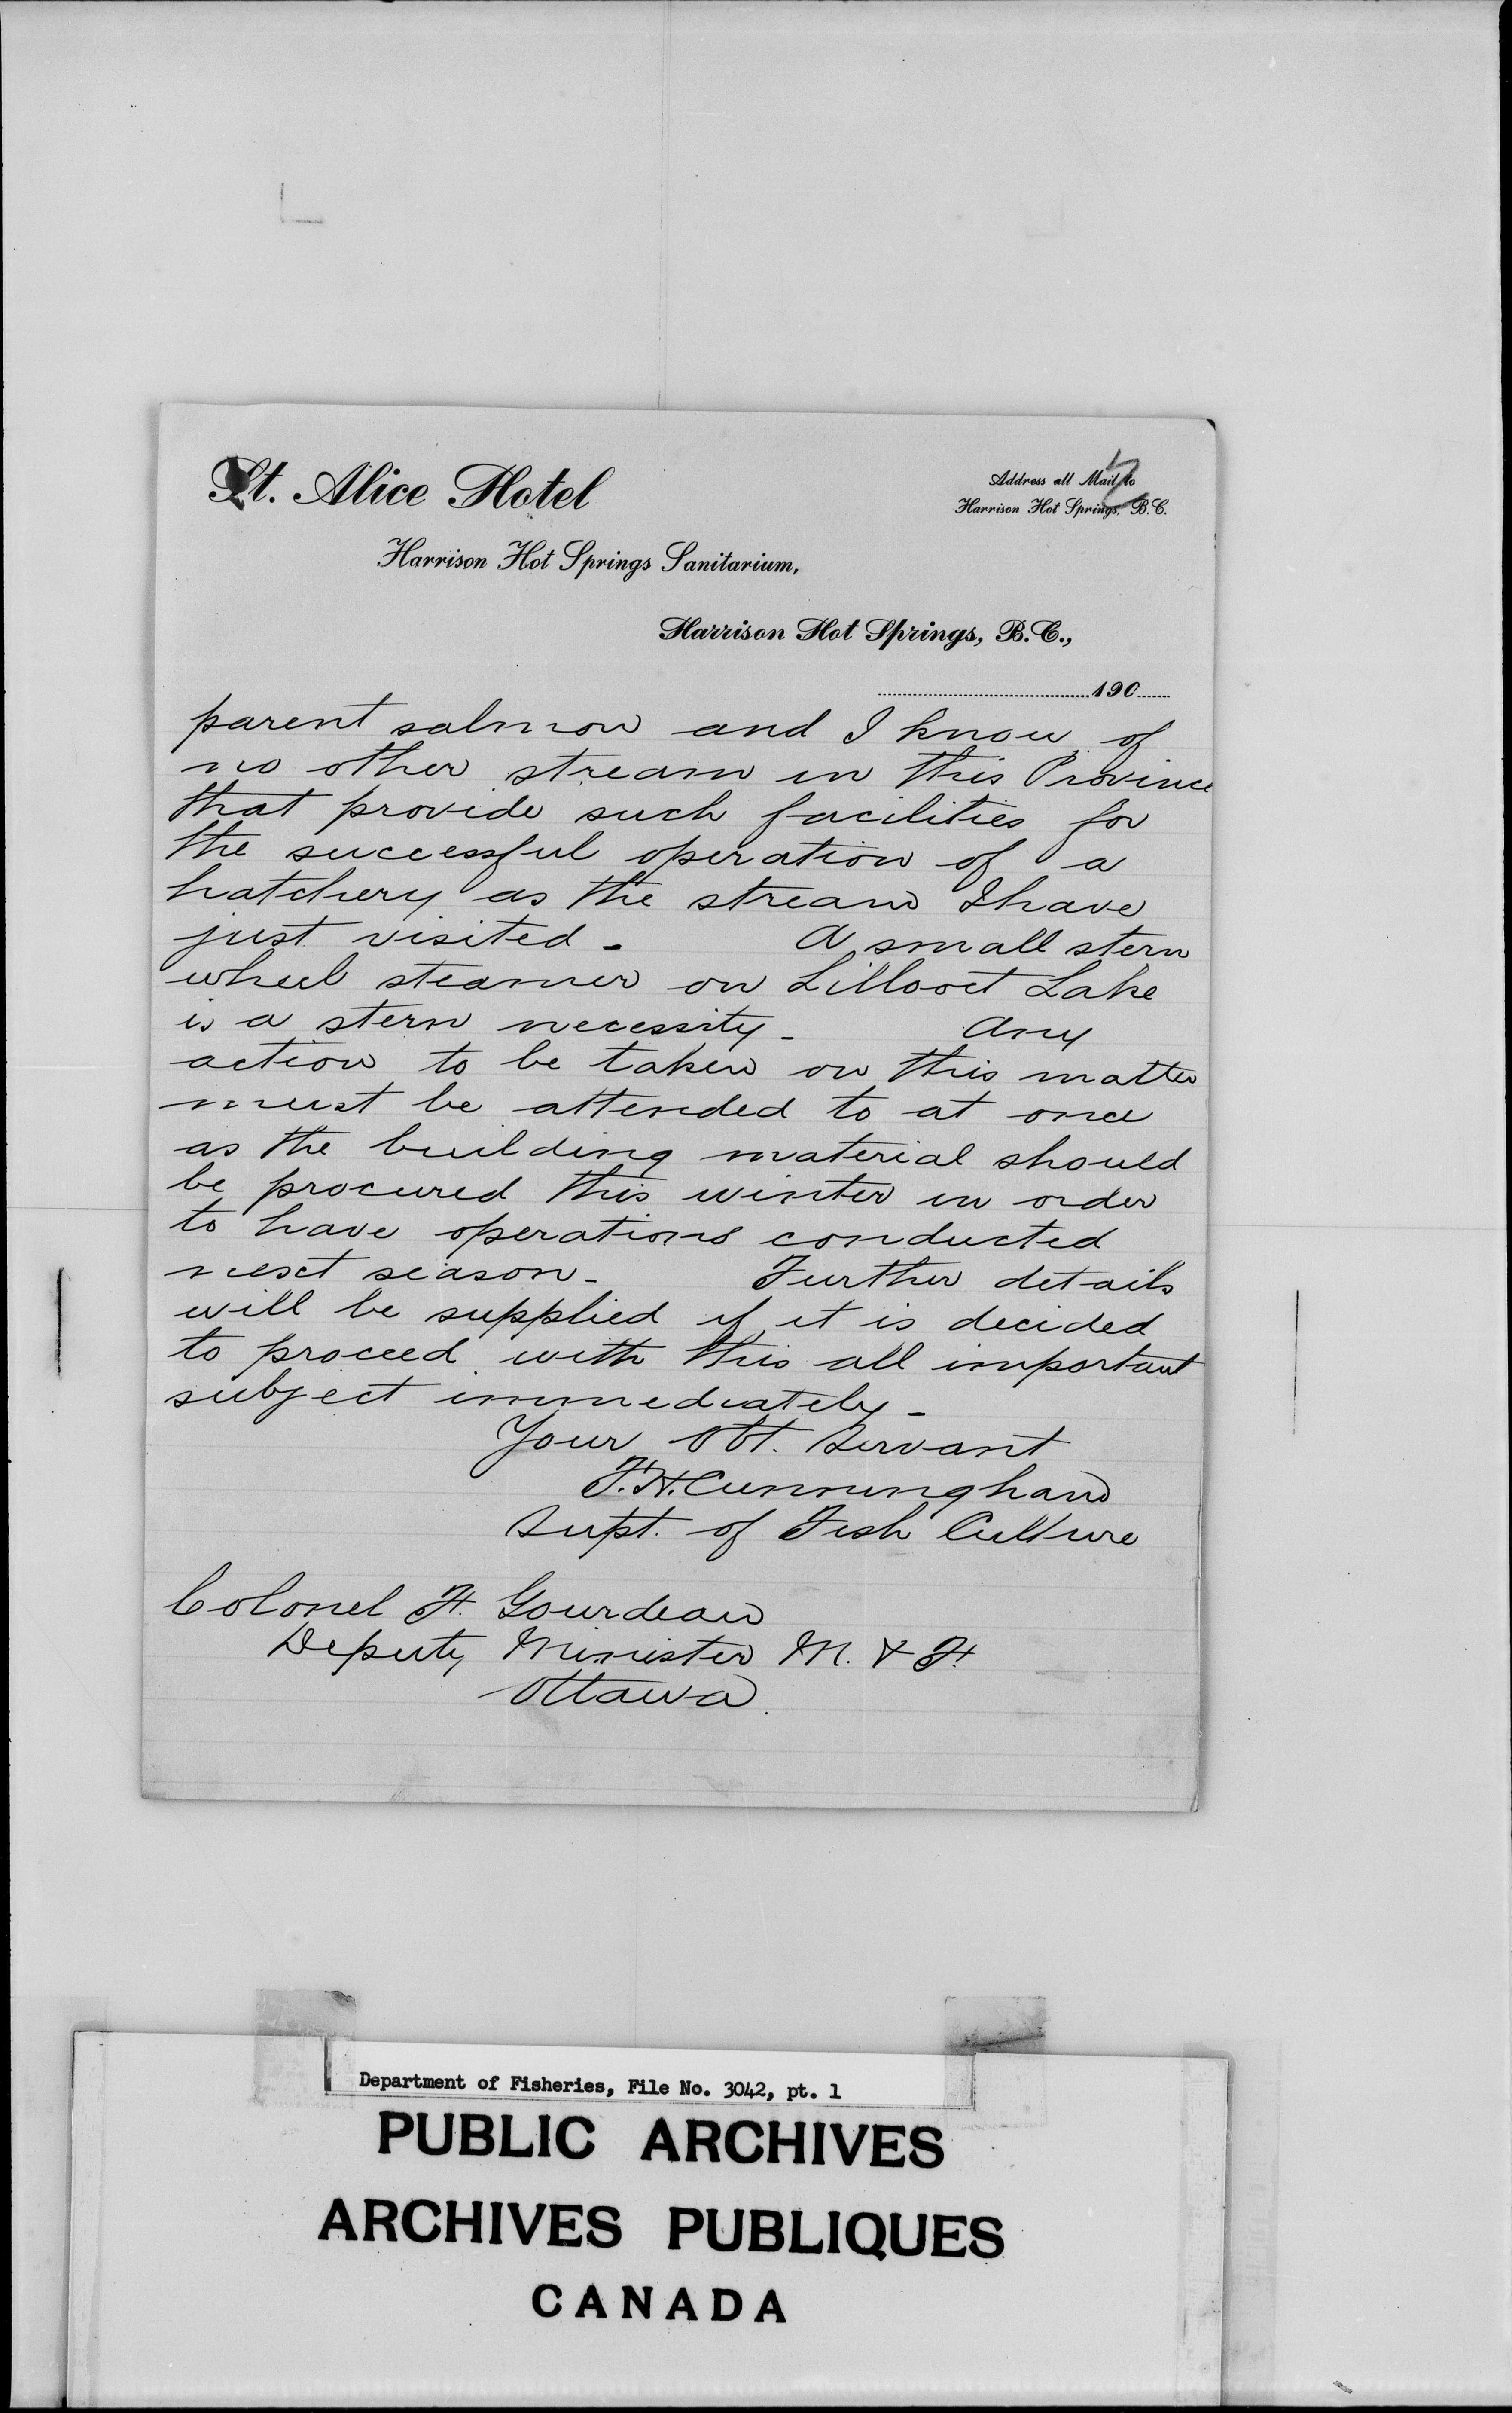 St. Alice Hotel
Address all Mail to
Harrison Hot Springs, B.C.
Harrison Hot Springs Sanitarium,
Harrison Hot Springs, B.C.,
190
parent salmon and I know of
no other stream in this Province
that provide such facilities for
the successful operation of a
hatchery as the stream I have
just visited - A small stern
wheel steamer on Lillooet Lake
is a stern necessity - Any
action to be taken on this matter
must be attended to at once
as the building material should
be procured this winter in order
to have operations conducted
next season - Further details
will be supplied if it is decided
to proceed with this all important
subject immediately -
Your Obt. Servant
F.H. Cunningham
Supt. of Fish Culture
Colonel F. Gourdeau
Deputy Minister M. & F.
Ottawa.
Department of Fisheries, File No. 3042, pt. 1
PUBLIC ARCHIVES
ARCHIVES PUBLIQUES
CANADA